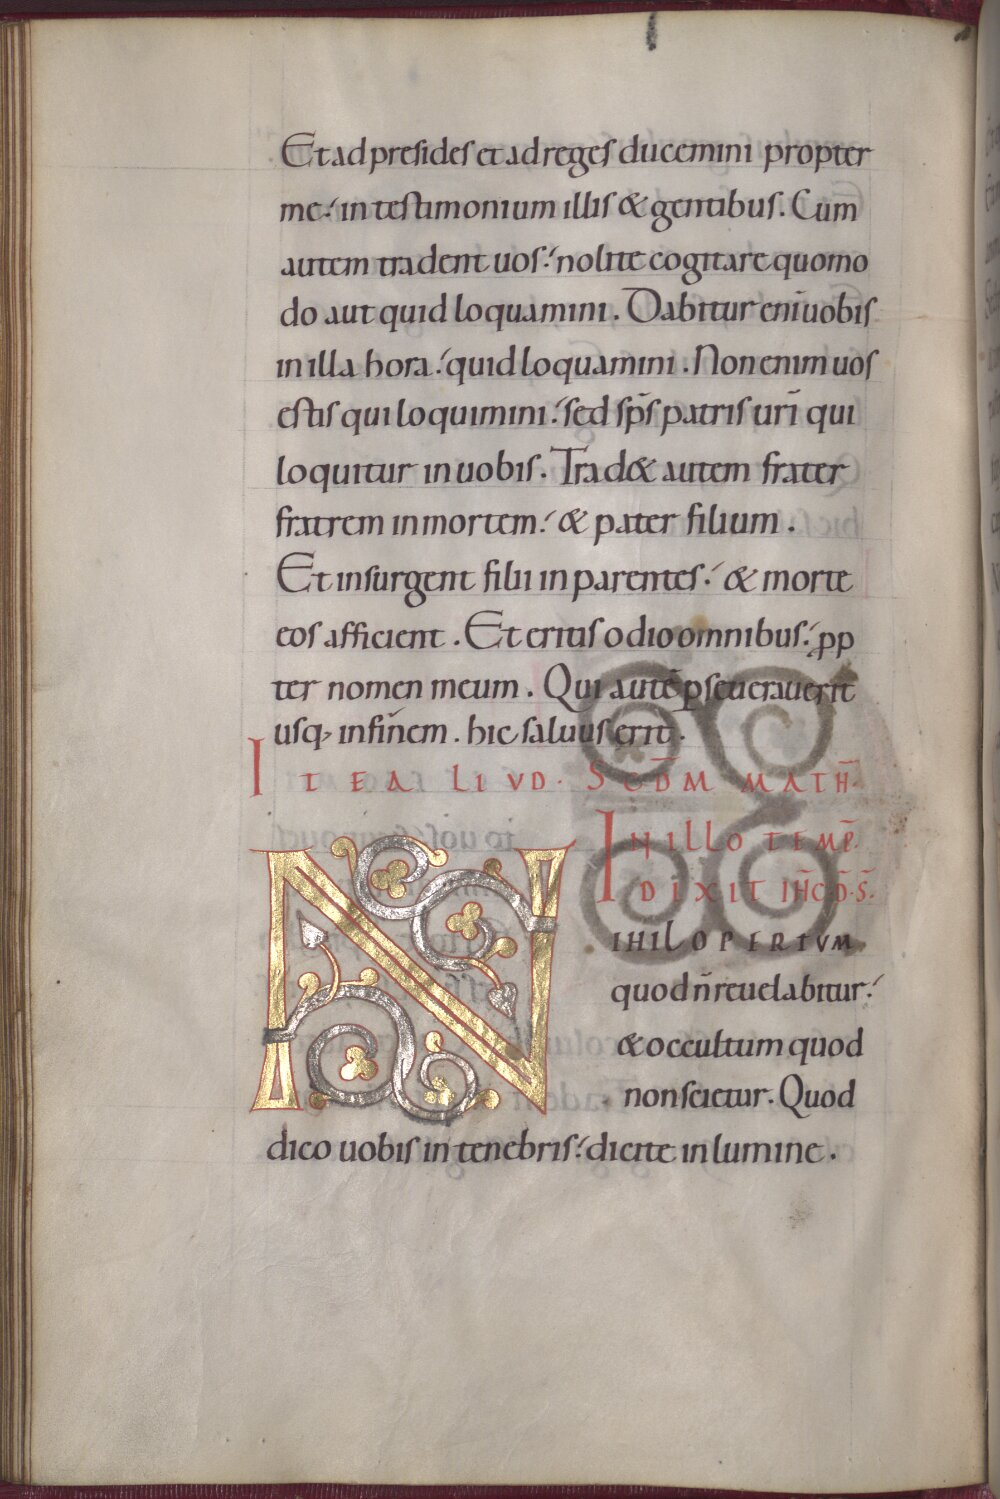 Et ad presides et ad reges ducemini propter
me. in testimonium illis & gentibus. Cum
autem tradent uos. nolite cogitare quomo
do aut quid loquamini. Dabitur eni̅ uobis
in illa hora. quid loquamini. Non enim uos
estis qui loquimini. sed sp̅s patris uri̅ qui
loquitur in uobis. Trad& autem frater
fratrem in mortem. & pater filium.
Et insurgent filii in parentes. & morte
eos afficient. Et eritis odio omnibus. ꝓp
ter nomen meum. Qui aute̅ ꝑseuerauerit
usq; in finem. hic saluus erit.
ITE ALIVD. SCD̅M MATH̅.
IN ILLO TEMP̅.
DIXIT IH̅C D̅. S̅.
NIHIL OPERTVM
quod n̅ reuelabitur.
& occultum quod
non scietur. Quod
dico uobis in tenebris. dicite in lumine.